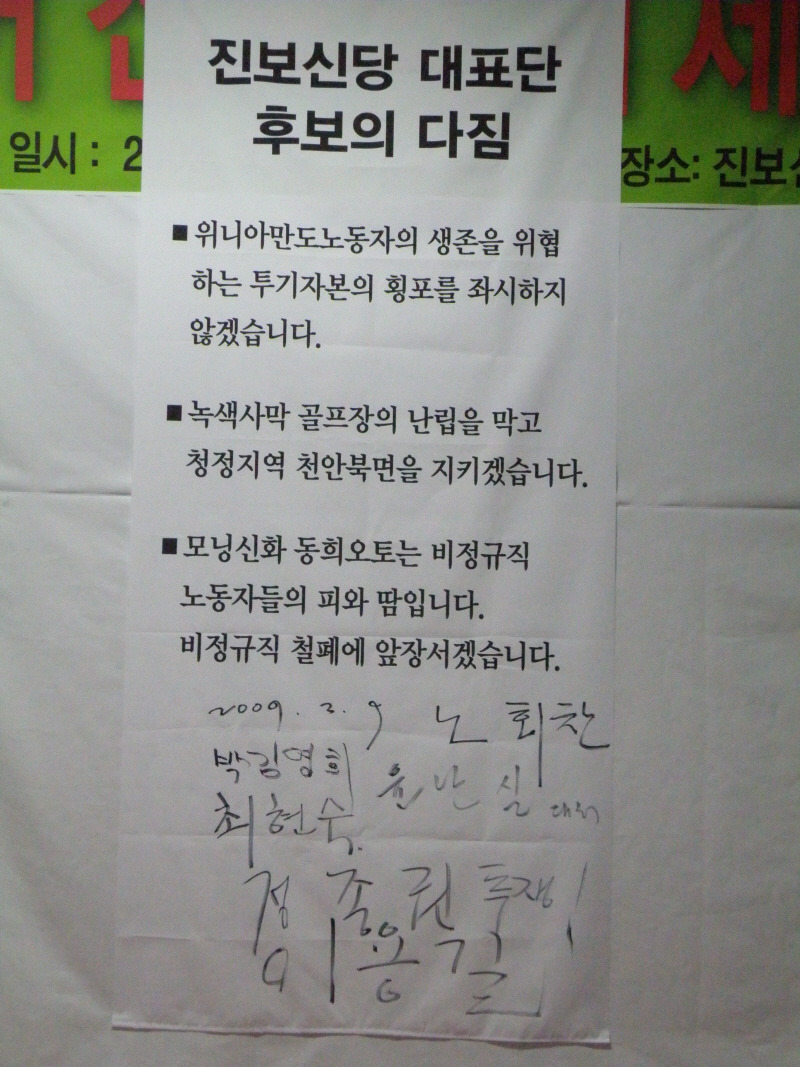 세
일시 : 2
장소: 진보신
진보신당 대표단
후보의 다짐
■ 위니아만도노동자의 생존을 위협
하는 투기자본의 횡포를 좌시하지
않겠습니다.
■ 녹색사막 골프장의 난립을 막고
청정지역 천안북면을 지키겠습니다.
■ 모닝신화 동희오토는 비정규직
노동자들의 피와 땀입니다.
비정규직 철폐에 앞장서겠습니다.
2009. 3. 9 노회찬
박김영희 윤난실
최현숙.
정종권 투쟁!
이용길